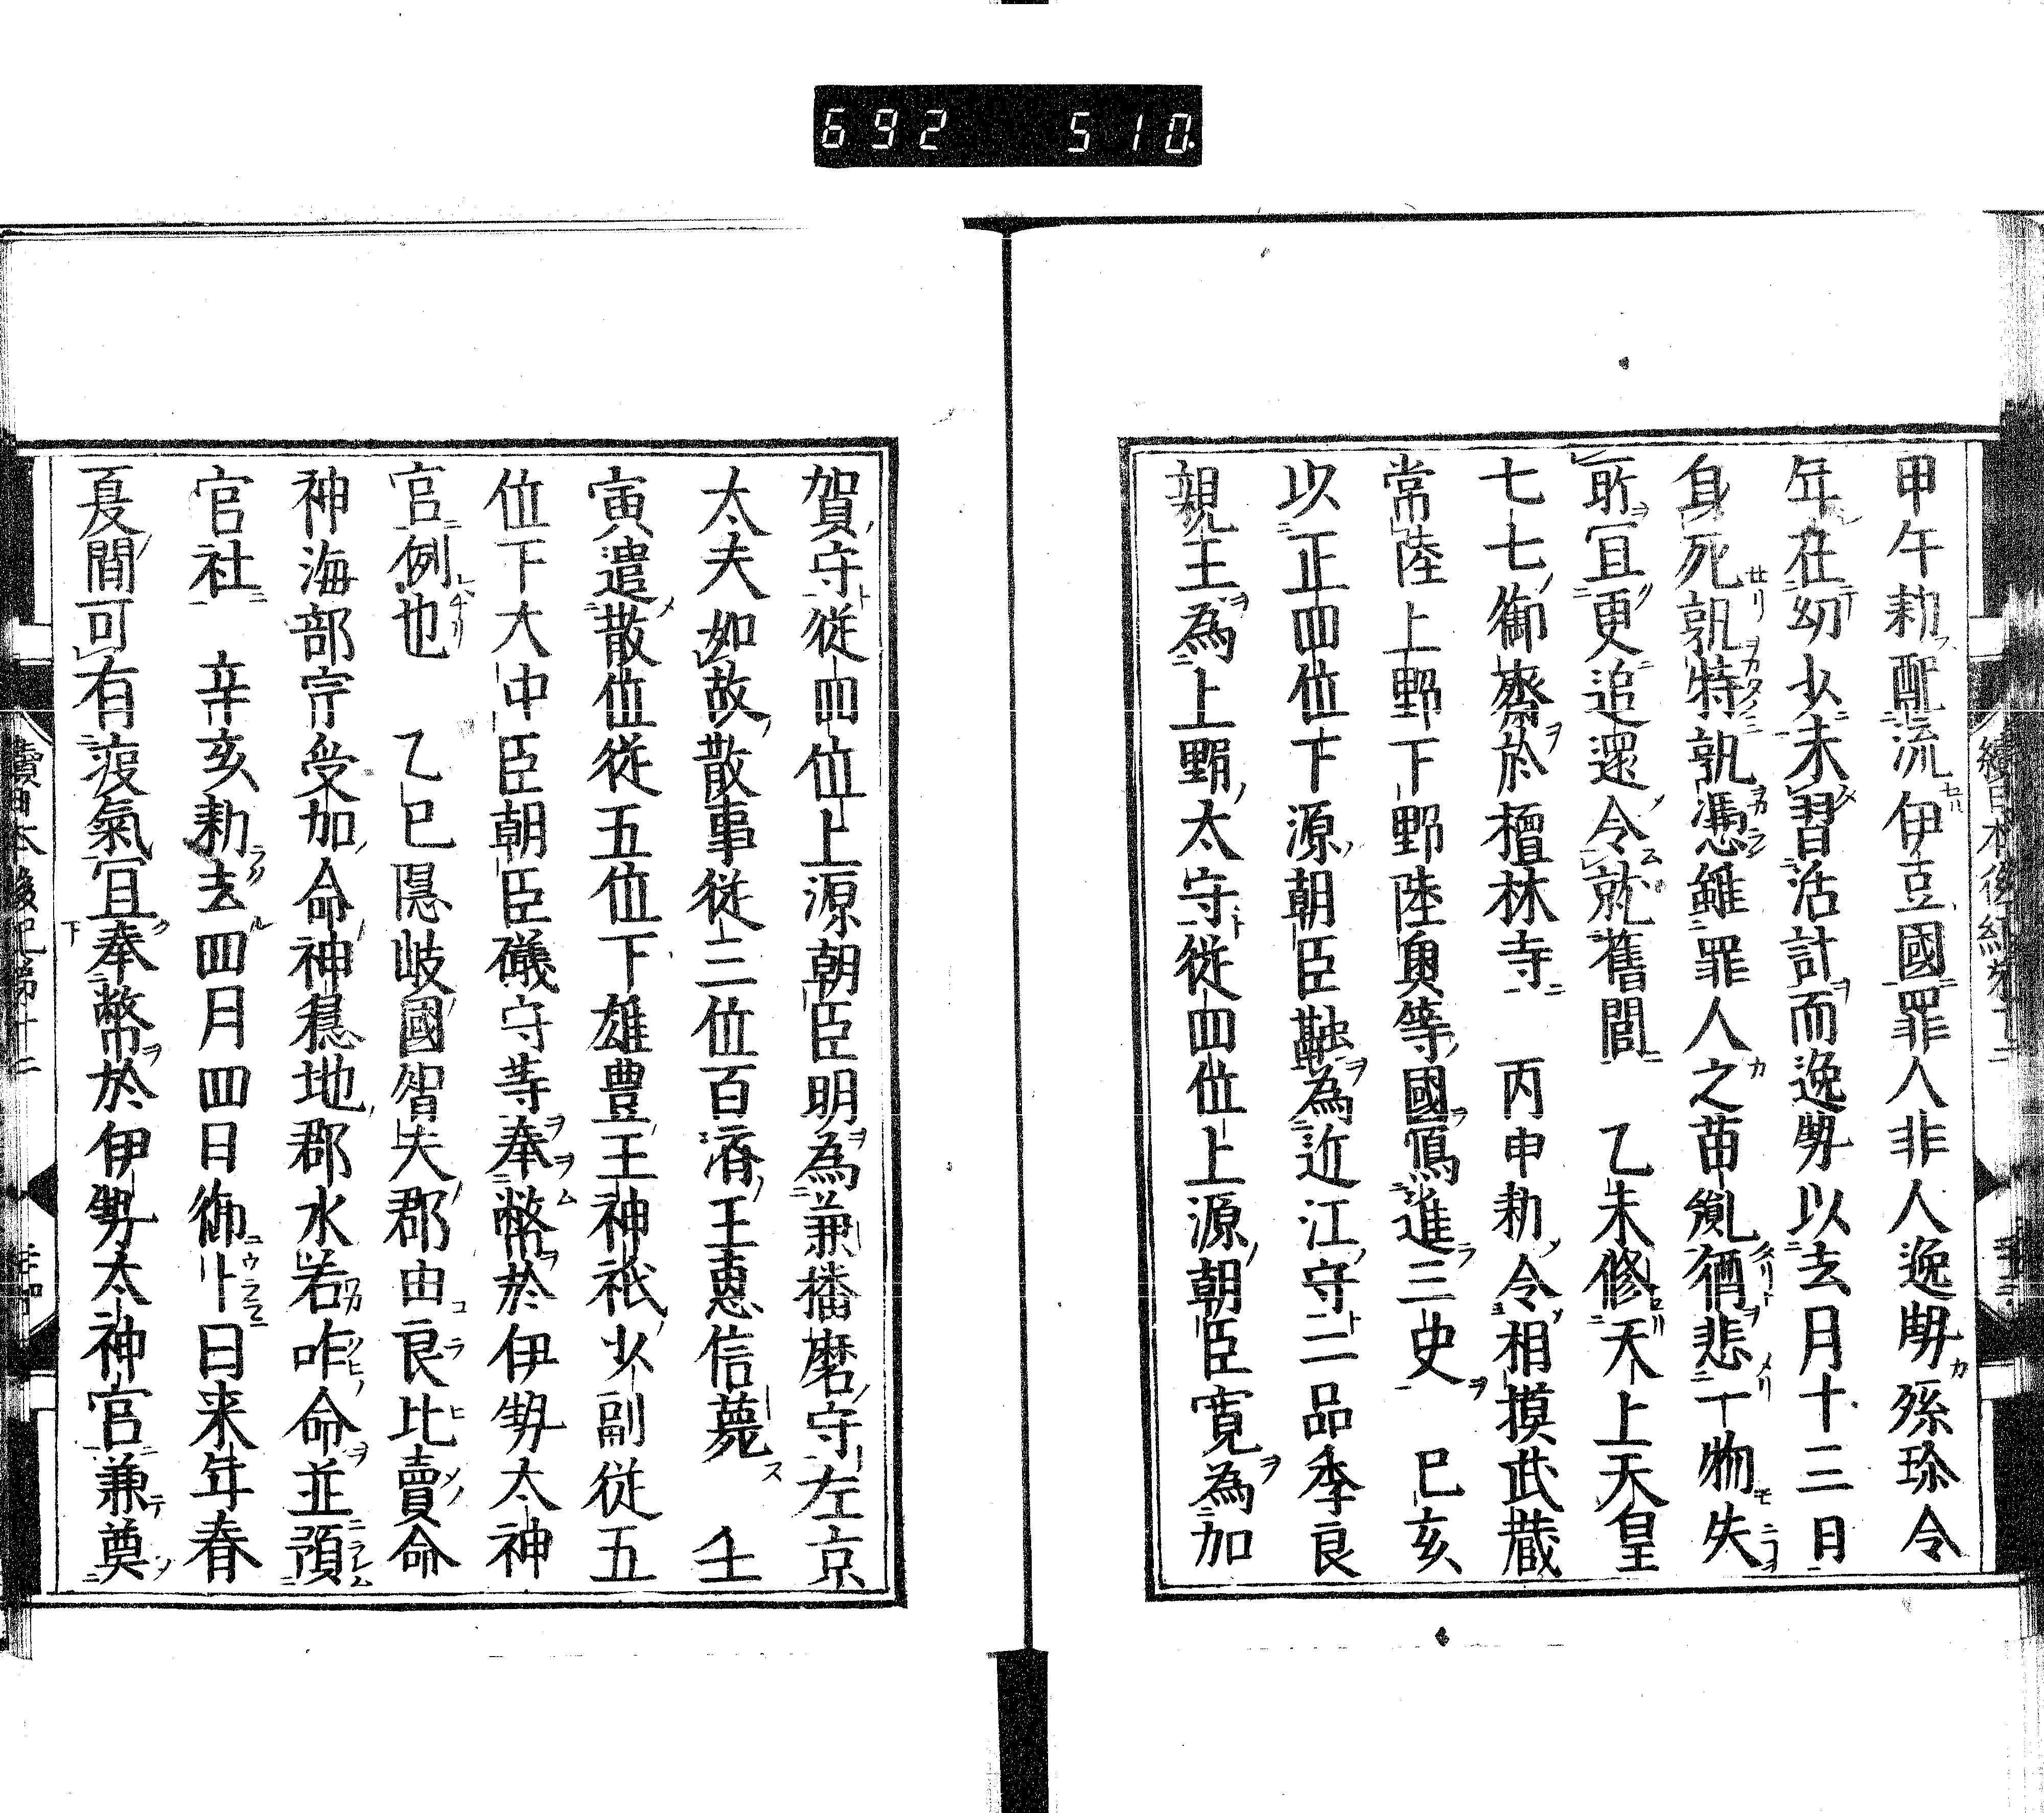 692 510
甲午勅配流伊豆國罪人非人逸勢孫珍令
年在幼少未習活計而逸勢以去月十三日
身死孰特孰憑雖罪人之苗胤猶悲一物失
所冝更追還令就舊閭 乙未修天上天皇
七七御齋於檀林寺 丙申勅令相摸武蔵
常陸上野下野陸奥等國寫進三史 已亥
以正四位下源朝臣融為近江守二品秀良
親王為上野太守従四位上源朝臣寛為加
賀守従四位上源朝臣明為兼播磨守左京
太夫如故散事従三位百濟王惠信薨 壬
寅遣散位従五位下雄豊王神祇少副従五
位下大中臣朝臣礒守等奉幣於伊勢太神
官例也 乙巳隠岐國智夫郡由良比賣命
神海部郡宇受加命神穏地郡水若咋命並預
官社 辛亥勅去四月四日御卜曰来年春
夏間可有疫氣冝奉幣於伊勢太神宮兼奠
續日本後紀卷十二
續日本後紀第十二